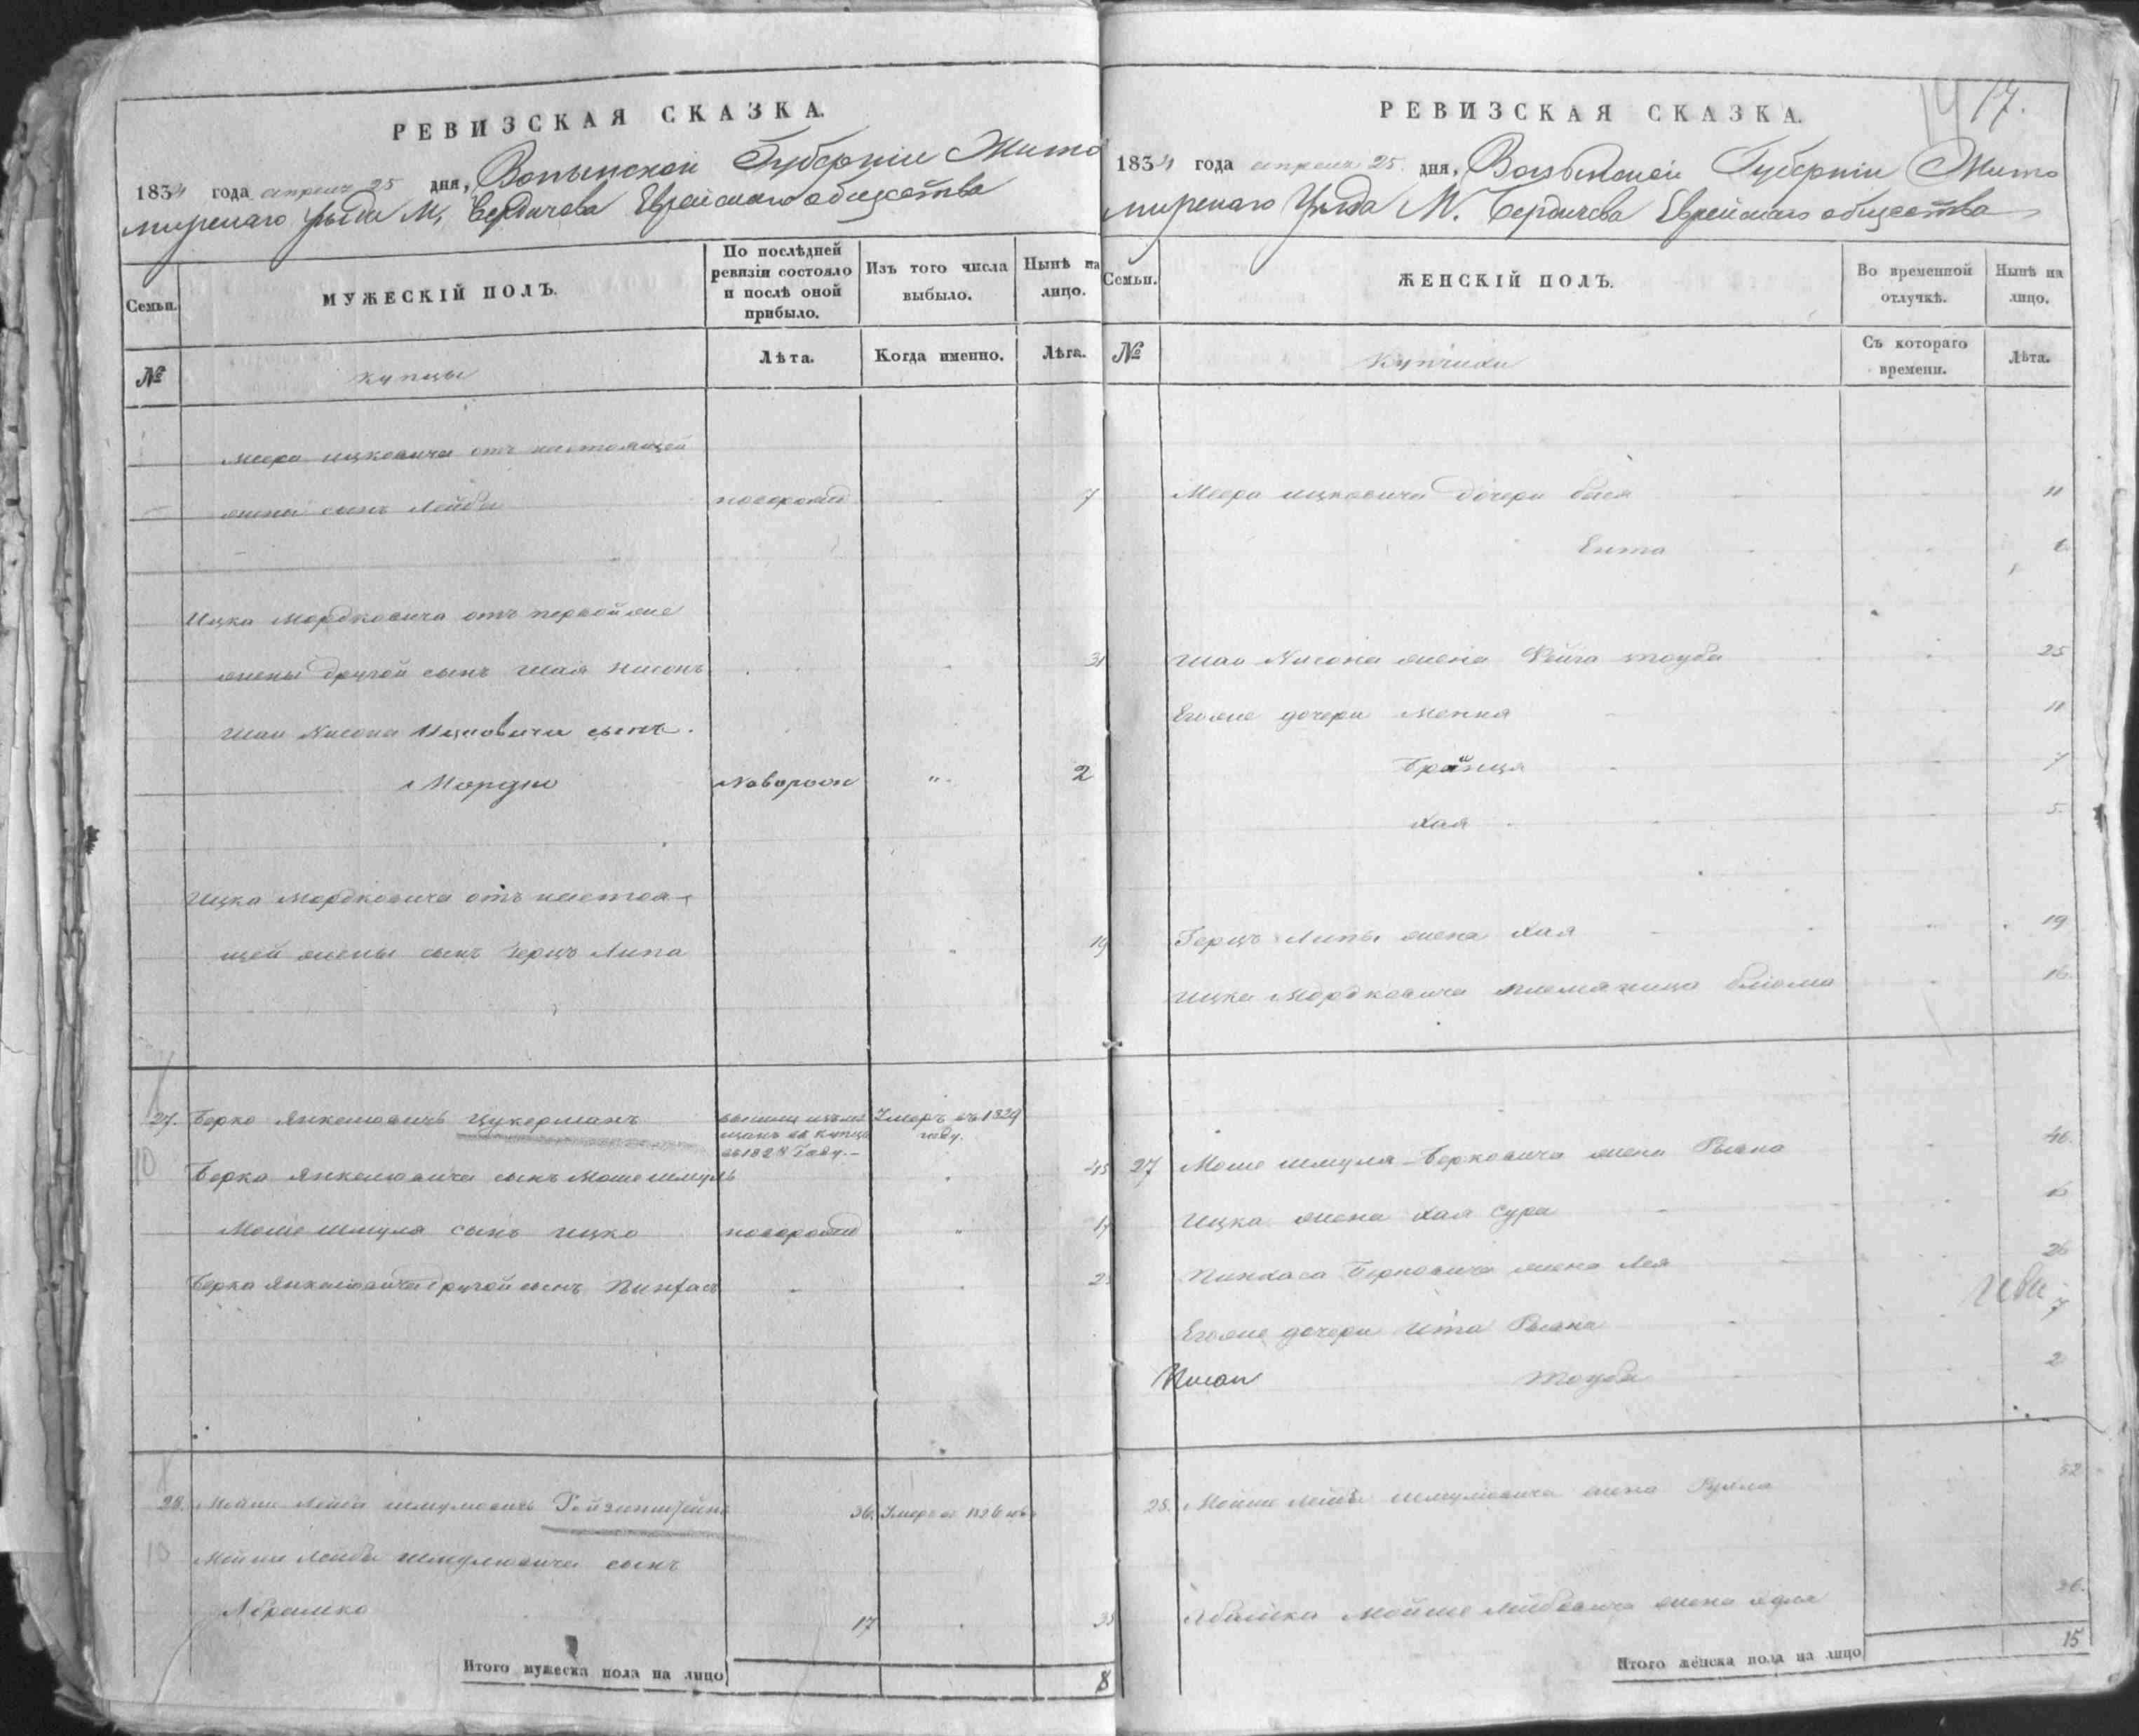 РЕВИЗСКАЯ СКАЗКА.
1834 года апреля 25 дня, Волынской Губерніи Жито
мирскаго уѣзда М. Бердичева Еврейскаго общества
Семьи.
МУЖЕСКІЙ ПОЛЪ.
По послѣдней ревизіи состояло и послѣ оной прибыло.
Изъ того числа выбыло.
Нынѣ на лицо.
№
купцы
Лѣта.
Когда именно.
Лѣта.
Меера ицковича отъ настоящей
жены сынъ Лейба новорожд 7
Ицка Мордковича отъ первой же
жены другой сынъ Шая Нисонъ 31
Шаи Нисона Ицковича сынъ
МордкоНоворож " 2
Ицка Мордковича отъ настоя-
щей жены сынъ Герцъ Липа 19
27. Берко Янкелювичъ Цукерманъ Умеръ въ 1829
году.
въ 1828 Году.
Берка Янкелювича сынъ Моше шмуль 45
Моше шмуля сынъ ицко новорожд " 17
Берка Янкелювича другой сынъ Пинхас
28. Лейба шмулювичъ 36. Умеръ въ 1826
Лейбы шмулювича сынъ
Абрамко 17
Итого мужеска пола на лицо 8
14 17.
РЕВИЗСКАЯ СКАЗКА.
1834 года апреля 25 дня, Волынской Губерніи Жито
мирскаго Уѣзда М. Бердичева Еврейскаго общества
Семьи.
ЖЕНСКІЙ ПОЛЪ.
Во временной отлучкѣ.
Нынѣ на лицо.
№
Купчихи
Съ котораго времени.
Лѣта.
Меера ицковича дочери бася 11
Ента 6
Шаи Нисона жена Фейга тоуба 25
Егоже дочери Мення 11
Браинця 7
хая 5.
Герцъ Липы жена хая 19
Ицка Мордковича племяница блюма 16.
27 Моше шмуля Берковича жена 46.
Ицка жена хая Сура
Пинхаса Берковича жена Лея 26
Егоже дочери Ита 7
тоуба 2
28. Мойше Лейбы шмулювича жена 52
Мойше Лейбовича жена 36.
Итого женска пола на лицо 15